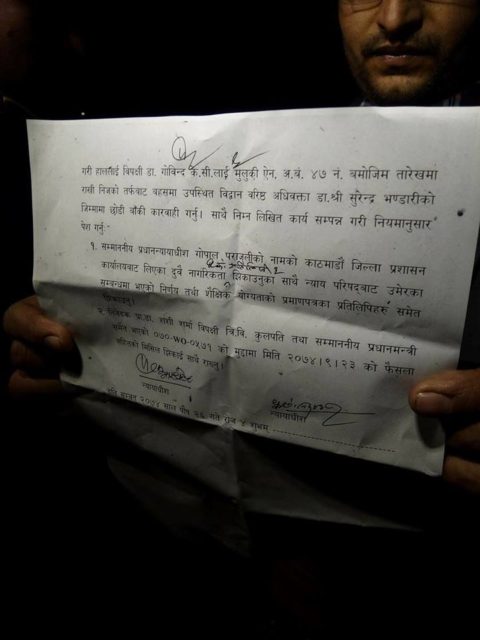 गरी हाललाई विपक्षी डा. गोविन्द के.सी.लाई मुलुकी ऐन, अ.बं. ४७ नं. बमोजिम तारेखमा
राखी निजको तर्फबाट बहसमा उपस्थित विद्वान वरिष्ठ अधिवक्ता डा.श्री सुरेन्द्र भण्डारीको
जिम्मामा छोडी बाँकी कारवाही गर्नु। साथै निम्न लिखित कार्य सम्पन्न गरी नियमानुसार
पेश गर्नुः
१. सम्माननीय प्रधानन्यायाधीश गोपाल पराजुलीको नामको काठमाडौं जिल्ला प्रशासन
कार्यालयबाट लिएका दुवै नागरिकता झिकाउनुका साथै न्याय परिषद्बाट उमेरका
सम्बन्धमा भएको निर्णय तथा शैक्षिक योग्यताको प्रमाणपत्रका प्रतिलिपिहरु समेत
झिकाउनु।
२. निवेदक प्रा.डा. शशी शर्मा विपक्षी त्रि.वि. कुलपति तथा सम्माननीय प्रधानमन्त्री
समेत भएको ०७०-WO-०४७१ को मुद्दामा मिति २०७४।९।२३ को फैसला
सहितको मिसिल झिकाई साथै राख्नु।
न्यायाधीश
न्यायाधीश
इति सम्वत् २०७४ साल पौष २६ गते रोज ४ शुभम्